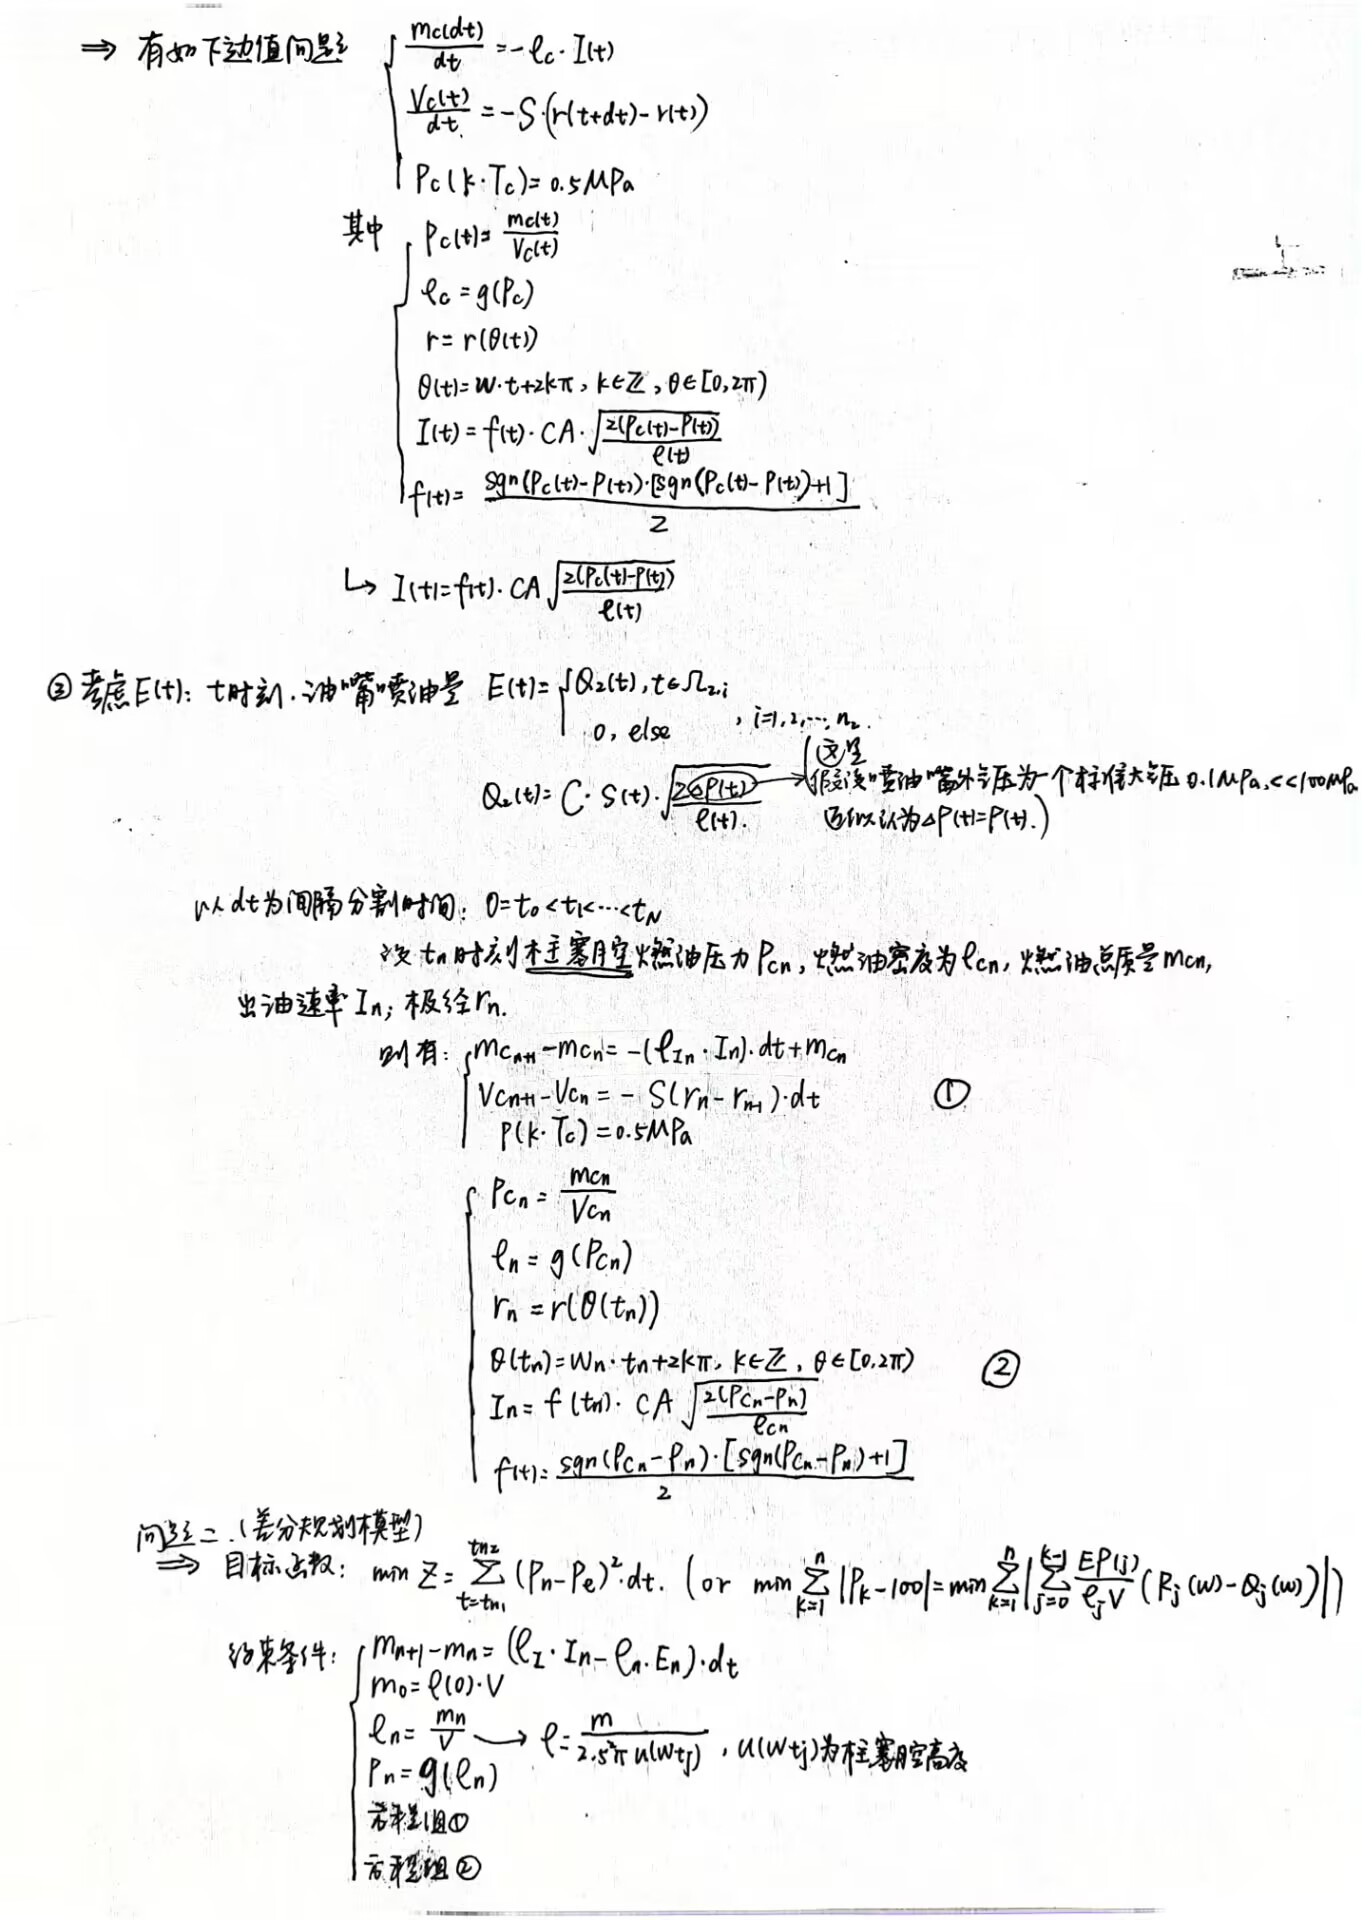 ⇒ 有如下边值问题 { mc(dt)/dt = -ρc·I(t)
Vc(t)/dt = -S·(r(t+dt)-r(t))
Pc(k·Tc)=0.5MPa
其中 { Pc(t)= mc(t)/Vc(t)
ρc = g(Pc)
r = r(θ(t))
θ(t)=w·t+2kπ, k∈Z, θ∈[0,2π)
I(t) = f(t)·CA·√(2(Pc(t)-P(t))/ρ(t))
f(t)= sgn(Pc(t)-P(t))·[sgn(Pc(t)-P(t))+1]/2
↳ I(t)=f(t)·CA√(2(Pc(t)-P(t))/ρ(t))
② 考虑E(t): t时刻.油嘴喷油量 E(t)= { Q₂(t), t∈Ω₂,i
0, else , i=1,2,…,n₂.
(这里
Q₂(t)= C·S(t)·√(2△P(t)/ρ(t)). → 假设喷油嘴外气压为一个标准大气压 0.1MPa,<<100MPa
近似认为△P(t)=P(t).)
以dt为间隔分割时间: 0=t₀<t₁<…<tN
设tn时刻柱塞腔燃油压力Pcn, 燃油密度为ρcn, 燃油总质量mcn,
出油速率In; 极径rn.
则有: { mcn+1-mcn = -(ρIn·In)·dt+mcn
Vcn+1-Vcn = - S(rn-rn-1)·dt ①
P(k·Tc)=0.5MPa
{ Pcn = mcn/Vcn
ρn = g(Pcn)
rn = r(θ(tn))
θ(tn)=wn·tn+2kπ, k∈Z, θ∈[0,2π) ②
In = f(tn)·CA√(2(Pcn-Pn)/ρcn)
f(t)= sgn(Pcn-Pn)·[sgn(Pcn-Pn)+1]/2
问题二.(差分规划模型)
⇒ 目标函数: min Z= Σ_{t=tn₁}^{tn₂} (Pn-Pe)²·dt. (or min Σ_{k=1}^{n} |Pk-100| = min Σ_{k=1}^{n} |Σ_{j=0}^{k-1} EP(j)/ρjV (Rj(w)-Qj(w))|)
约束条件: { mn+1-mn = (ρI·In-ρn·En)·dt
m₀=ρ(0)·V
ρn= mn/V → ρ= m/(2.5²π u(wtj)) , u(wtj)为柱塞腔高度
Pn=g(ρn)
方程组①
方程组②